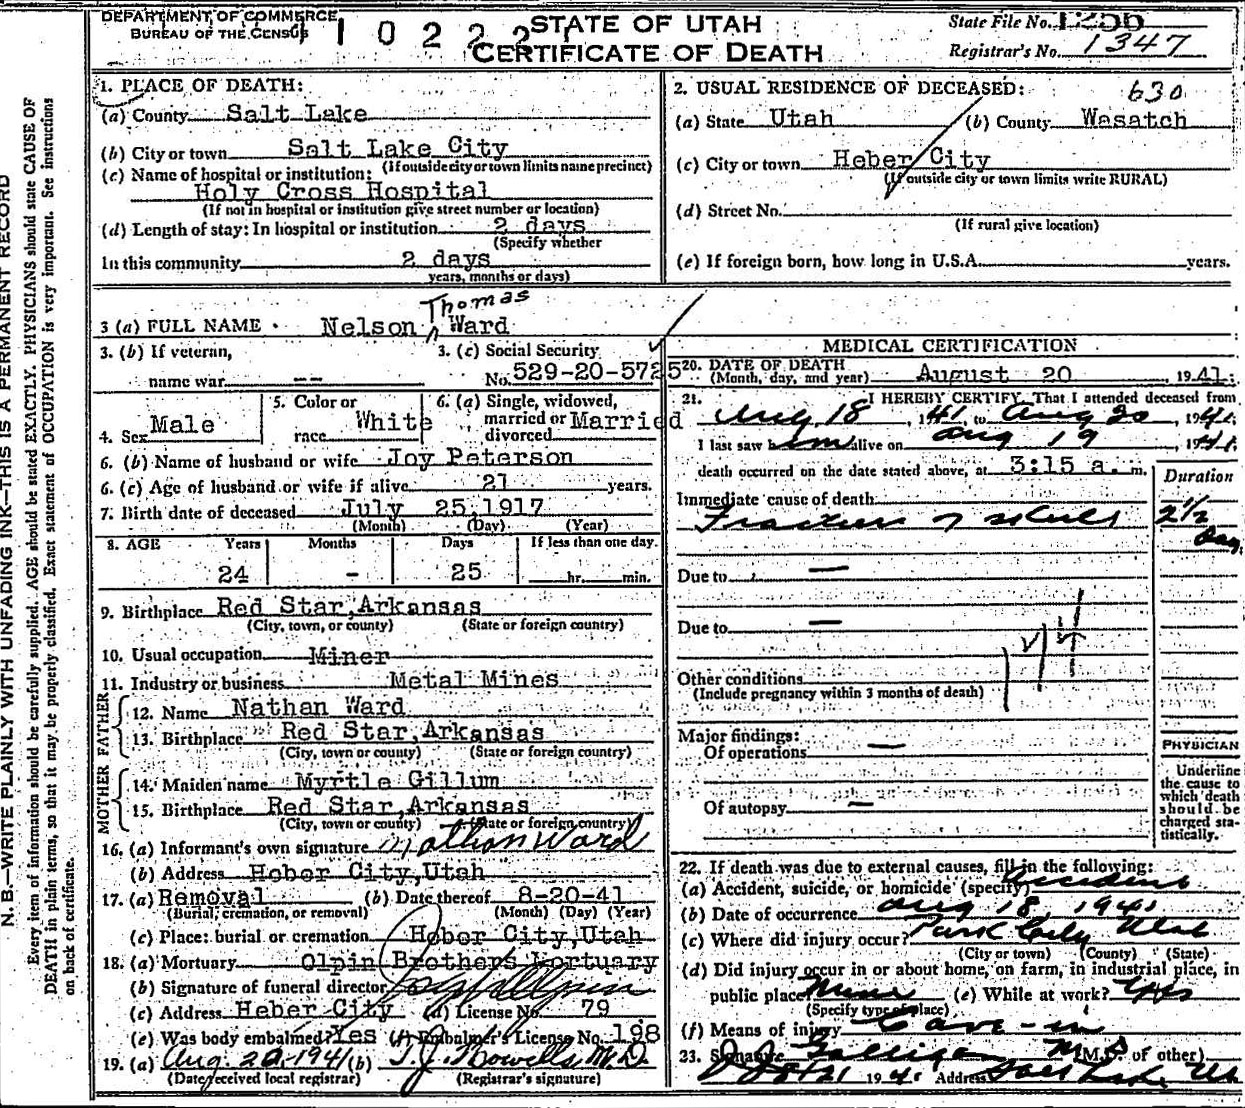 DEPARTMENT OF COMMERCE
BUREAU OF THE CENSUS
STATE OF UTAH
CERTIFICATE OF DEATH
State File No. 1256
Registrar's No. 1347
1. PLACE OF DEATH:
(a) County Salt Lake
(b) City or town Salt Lake City
(If outside city or town limits name precinct)
(c) Name of hospital or institution:
Holy Cross Hospital
(If not in hospital or institution give street number or location)
(d) Length of stay: In hospital or institution 2 days
(Specify whether
In this community 2 days
years, months or days)
2. USUAL RESIDENCE OF DECEASED: 630
(a) State Utah (b) County Wasatch
(c) City or town Heber City
(If outside city or town limits write RURAL)
(d) Street No.
(If rural give location)
(e) If foreign born, how long in U.S.A. years.
Thomas
3 (a) FULL NAME Nelson Ward
3. (b) If veteran,
name war --
3. (c) Social Security
No. 529-20-5725
4. Sex Male
5. Color or
race White
6. (a) Single, widowed,
married or Married
divorced
6. (b) Name of husband or wife Joy Peterson
6. (c) Age of husband or wife if alive 21 years.
7. Birth date of deceased July 25,1917
(Month) (Day) (Year)
8. AGE Years Months Days If less than one day.
24 - 25 hr. min.
9. Birthplace Red Star,Arkansas
(City, town, or county) (State or foreign country)
10. Usual occupation Miner
11. Industry or business Metal Mines
FATHER
12. Name Nathan Ward
13. Birthplace Red Star,Arkansas
(City, town or county) (State or foreign country)
MOTHER
14. Maiden name Myrtle Gillum
15. Birthplace Red Star,Arkansas
(City, town or county) (State or foreign country)
16. (a) Informant's own signature Nathan Ward
(b) Address Heber City,Utah
17. (a) Removal (b) Date thereof 8-20-41
(Burial, cremation, or removal) (Month) (Day) (Year)
(c) Place: burial or cremation Heber City,Utah
18. (a) Mortuary Olpin Brothers Mortuary
(b) Signature of funeral director
(c) Address Heber City (d) License No. 79
(e) Was body embalmed? Yes (f) Embalmer's License No. 198
19. (a) Aug. 20-1941 (b) T.J. Howells M.D.
(Date received local registrar) (Registrar's signature)
MEDICAL CERTIFICATION
20. DATE OF DEATH
(Month, day, and year) August 20, 1941.
21. I HEREBY CERTIFY, That I attended deceased from
Aug 18, 1941 to Aug 20, 1941.
I last saw him alive on Aug 19, 1941.
death occurred on the date stated above, at 3:15 a. m.
Duration
Immediate cause of death
Fracture of skull 2 1/2
Days
Due to —
Due to —
Other conditions
(Include pregnancy within 3 months of death)
Major findings:
Of operations —
Of autopsy —
PHYSICIAN
Underline
the cause to
which death
should be
charged sta-
tistically.
22. If death was due to external causes, fill in the following:
(a) Accident, suicide, or homicide (specify) Accident
(b) Date of occurrence Aug 18 1941
(c) Where did injury occur? Park City Utah
(City or town) (County) (State)
(d) Did injury occur in or about home, on farm, in industrial place, in
public place? Mine (e) While at work? Yes
(Specify type of place)
(f) Means of injury Cave-in
23. Signature Galligan M.D. (M.D. or other)
8/21 1941 Address Salt Lake, Ut
N. B.—WRITE PLAINLY WITH UNFADING INK—THIS IS A PERMANENT RECORD
Every item of information should be carefully supplied. AGE should be stated EXACTLY. PHYSICIANS should state CAUSE OF
DEATH in plain terms, so that it may be properly classified. Exact statement of OCCUPATION is very important. See instructions
on back of certificate.